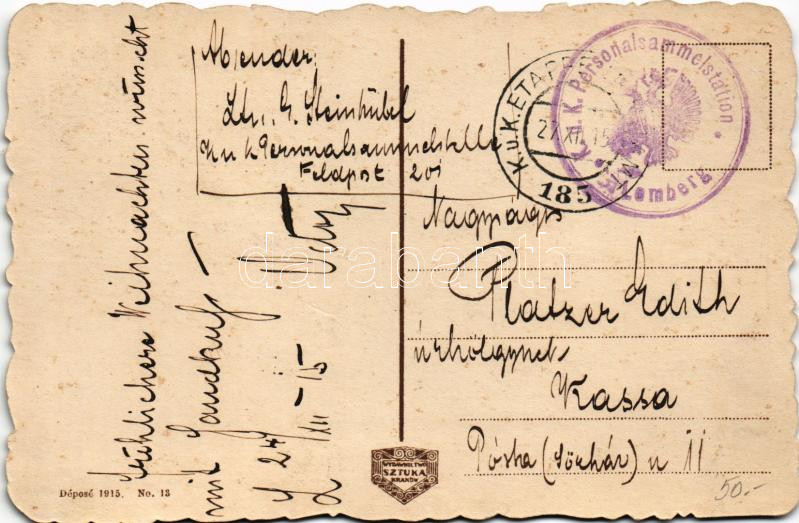 Absender
Ltn. G. Steinhübel
K u k Personalsammelstelle
Feldpost 201
fröhlichere Weihnachten wünscht
mit Handkuß
27/XII - 15
K.u.K. ETAPPEN
27.XII.15
185
K.u.K. Personalsammelstation
Lemberg
Nagyságos
Platzer Edith
úrhölgynek
Kassa
Pósta (Sörház) u 11
WYDAWNICTWO
SZTUKA
KRAKÓW
Déposé 1915. No. 13
50.-
darabanth